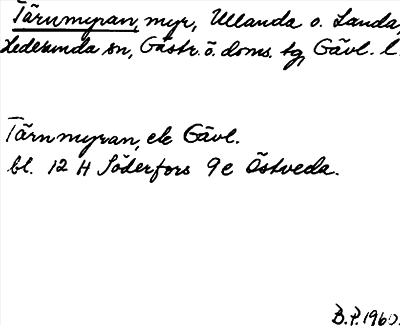 Tärnmyran, myr, Ullanda o. Landa,
Hedesunda sn, Gästr. ö. doms. hg, Gävl. l.
Tärnmyran, ek Gävl.
bl. 12 H Söderfors 9e Östveda.
B.P. 1960.